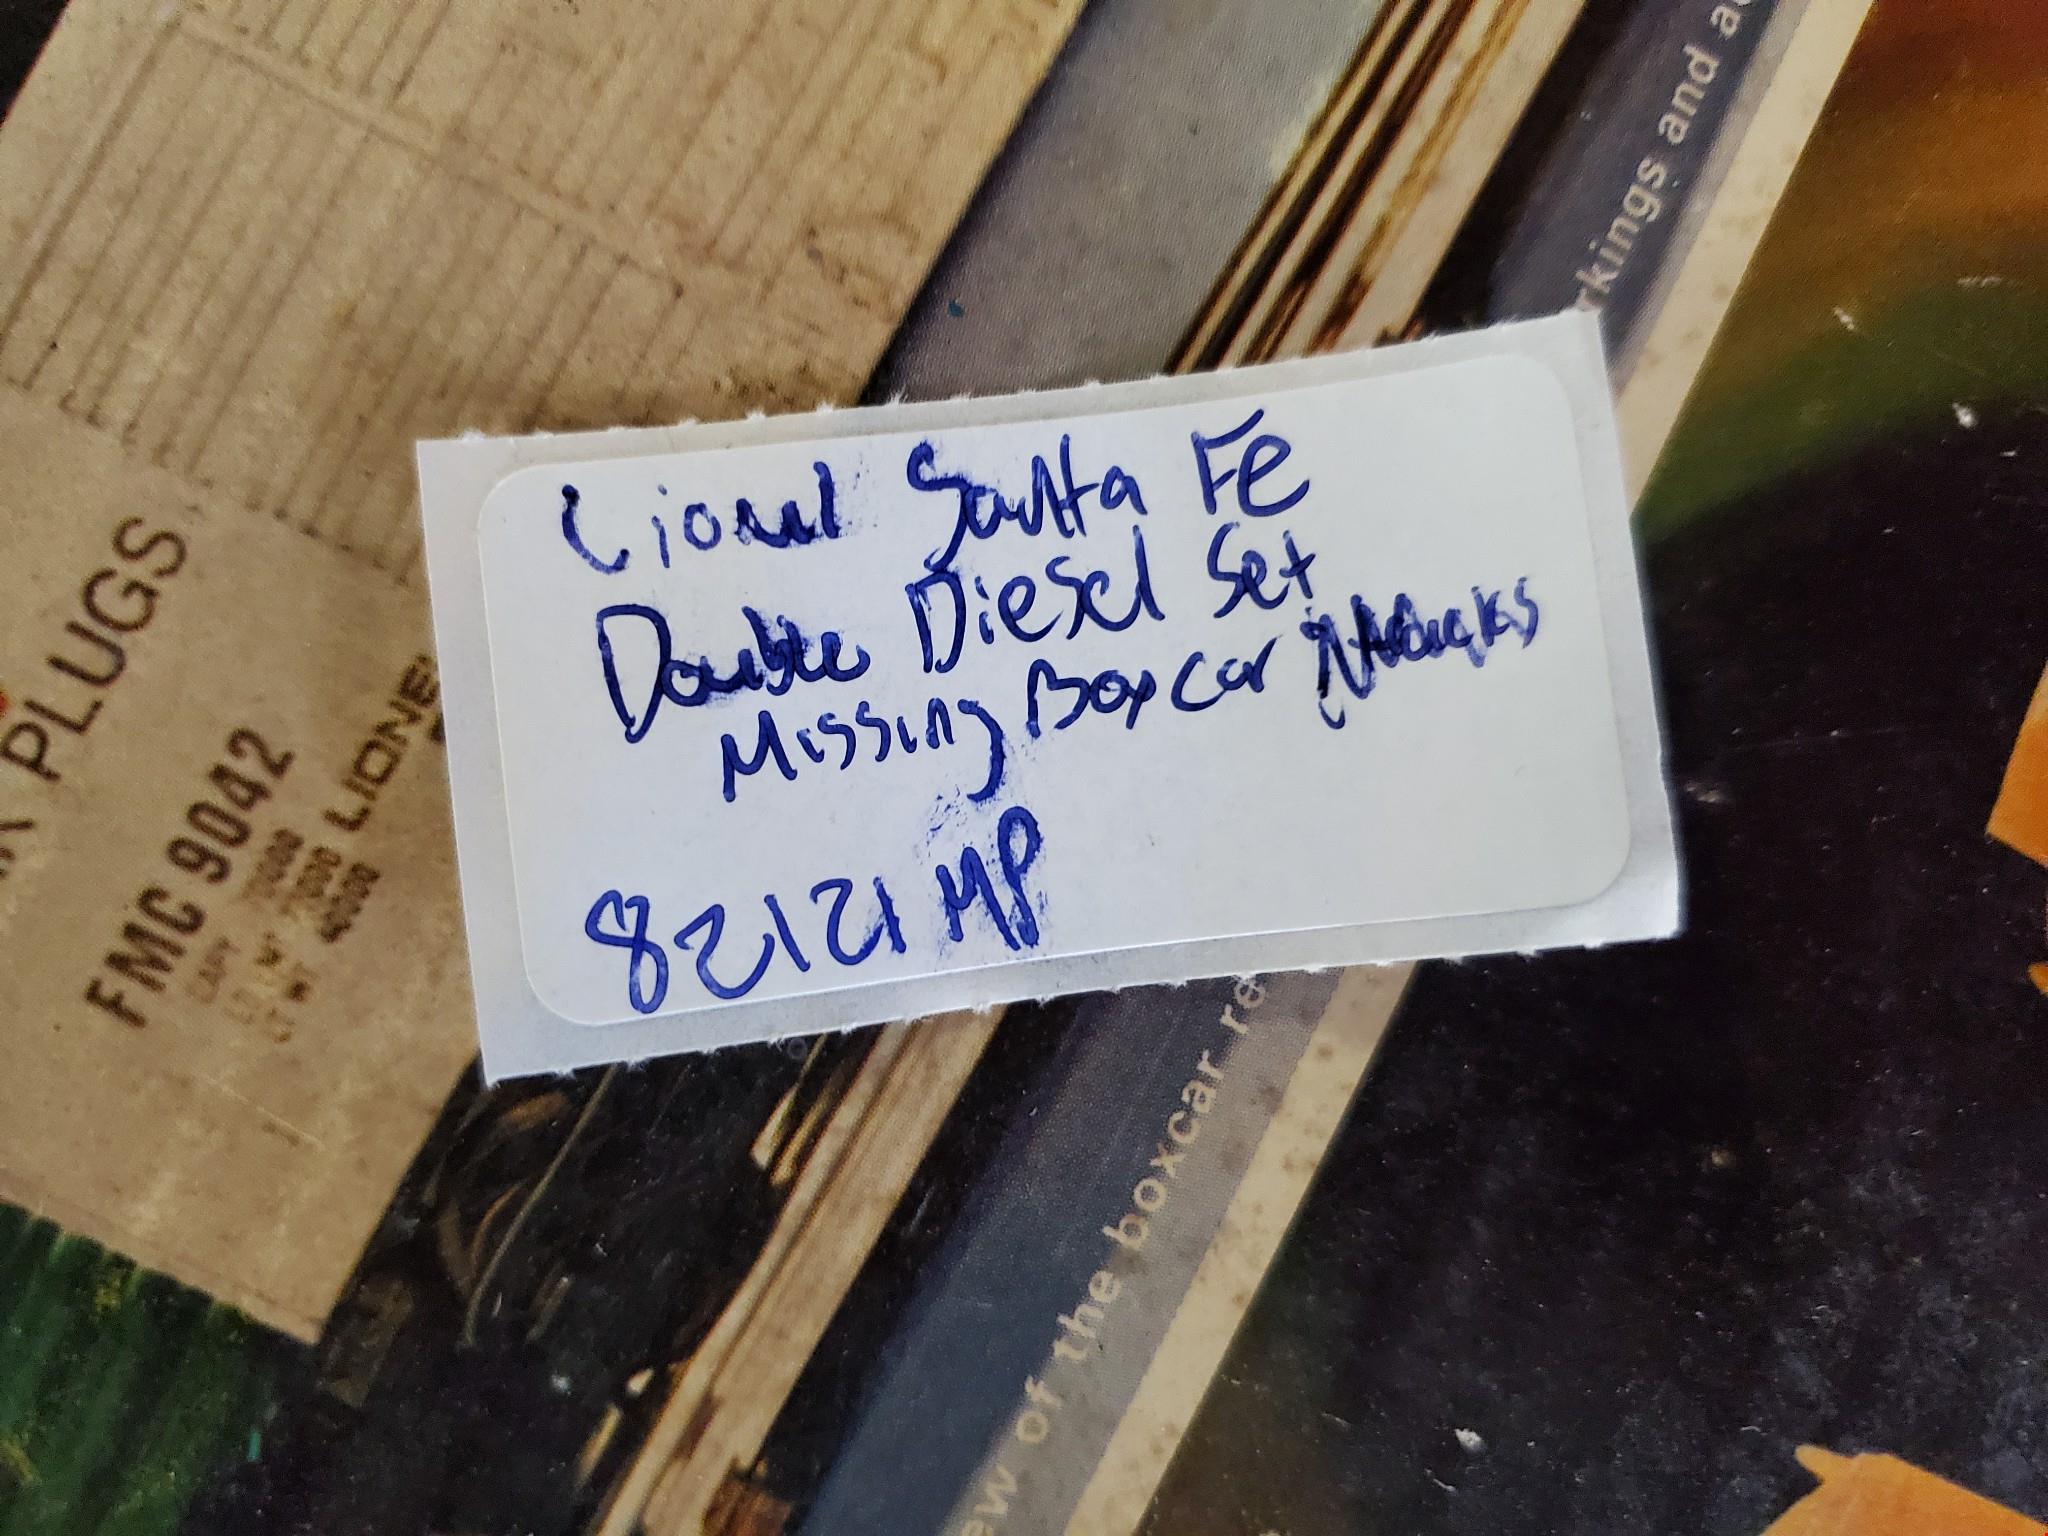 Lionel Santa Fe
Double Diesel Set
Missing Boxcar
82121 MP
PLUGS
FMC 9042
LIONEL
40000
rkings and a
ew of the boxcar re